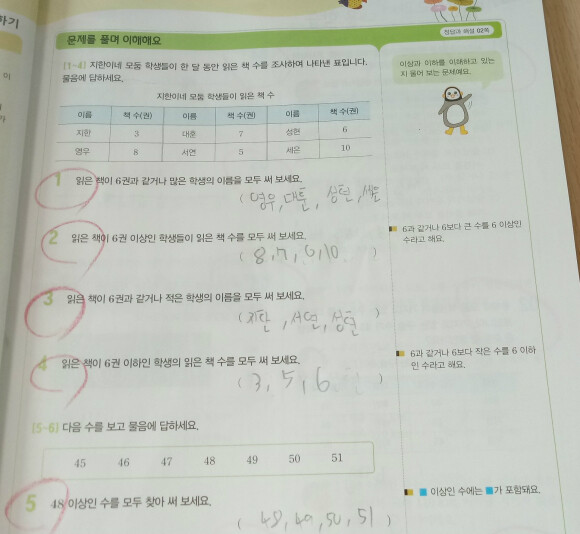 정답과 해설 02쪽
문제를 풀며 이해해요
[1~4] 지한이네 모둠 학생들이 한 달 동안 읽은 책 수를 조사하여 나타낸 표입니다.
물음에 답하세요.
이상과 이하를 이해하고 있는
지 물어 보는 문제예요.
지한이네 모둠 학생들이 읽은 책 수
이름 책 수(권) 이름 책 수(권) 이름 책 수(권)
지한 3 대훈 7 성현 6
영우 8 서연 5 세은 10
1 읽은 책이 6권과 같거나 많은 학생의 이름을 모두 써 보세요.
( 영우, 대훈, 성현, 세은 )
2 읽은 책이 6권 이상인 학생들이 읽은 책 수를 모두 써 보세요.
( 8, 7, 6, 10 )
6과 같거나 6보다 큰 수를 6 이상인
수라고 해요.
3 읽은 책이 6권과 같거나 적은 학생의 이름을 모두 써 보세요.
( 지한, 서연, 성현 )
4 읽은 책이 6권 이하인 학생의 읽은 책 수를 모두 써 보세요.
( 3, 5, 6 )
6과 같거나 6보다 작은 수를 6 이하
인 수라고 해요.
[5~6] 다음 수를 보고 물음에 답하세요.
45 46 47 48 49 50 51
5 48 이상인 수를 모두 찾아 써 보세요.
( 48, 49, 50, 51 )
■ 이상인 수에는 ■가 포함돼요.